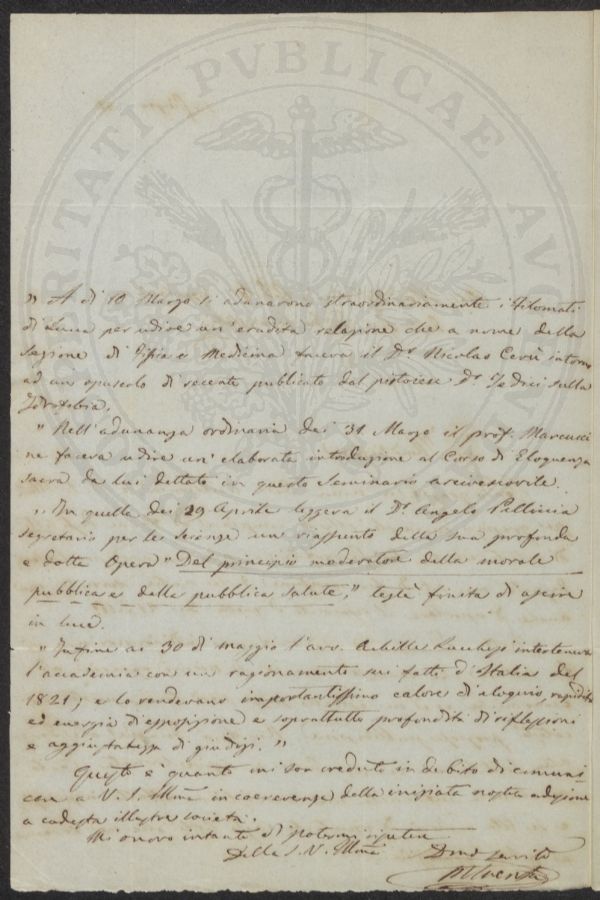 PROSPERITATI PVBLICAE AVGENDAE
„ A dì 10 Marzo s'adunarono straordinariamente i Filomati
di Lucca per udire un'erudita relazione che a nome della
sezione di Fisica e Medicina faceva il Dr. Nicolao Cerù intorno
ad un opuscolo di recente publicato dal pistoiese Dr. Tedici sulla
Idrofobia.
" Nell'adunanza ordinaria dei 31 Marzo il prof. Marcucci
ne faceva udire un'elaborata introduzione al Corso di Eloquenza
sacra da lui dettato in questo Seminario arcivescovile.
„ In quella dei 29 Aprile leggeva il Dr. Angelo
segretario per le scienze un riassunto della sua profonda
e dotta Opera "Del principio moderatore della morale
pubblica e della pubblica salute," testè finita di uscire
in luce.
" Infine ai 30 di maggio l'avv. Achille Lucchesi interteneva
l'accademia con un ragionamento sui fatti d'Italia del
1821; e lo rendevano importantissimo calore d'eloquio, rapidità
ed energia d'esposizione e soprattutto profondità di riflessioni
e aggiustatezza di giudizi. "
Questo è quanto mi son creduto in debito di comuni
care a V. S. Illma in coerenza della iniziata nostra adesione
a codesta illustre società.
Mi onoro intanto di potermi ripetere
Della S. V. Illma
Dmo servito